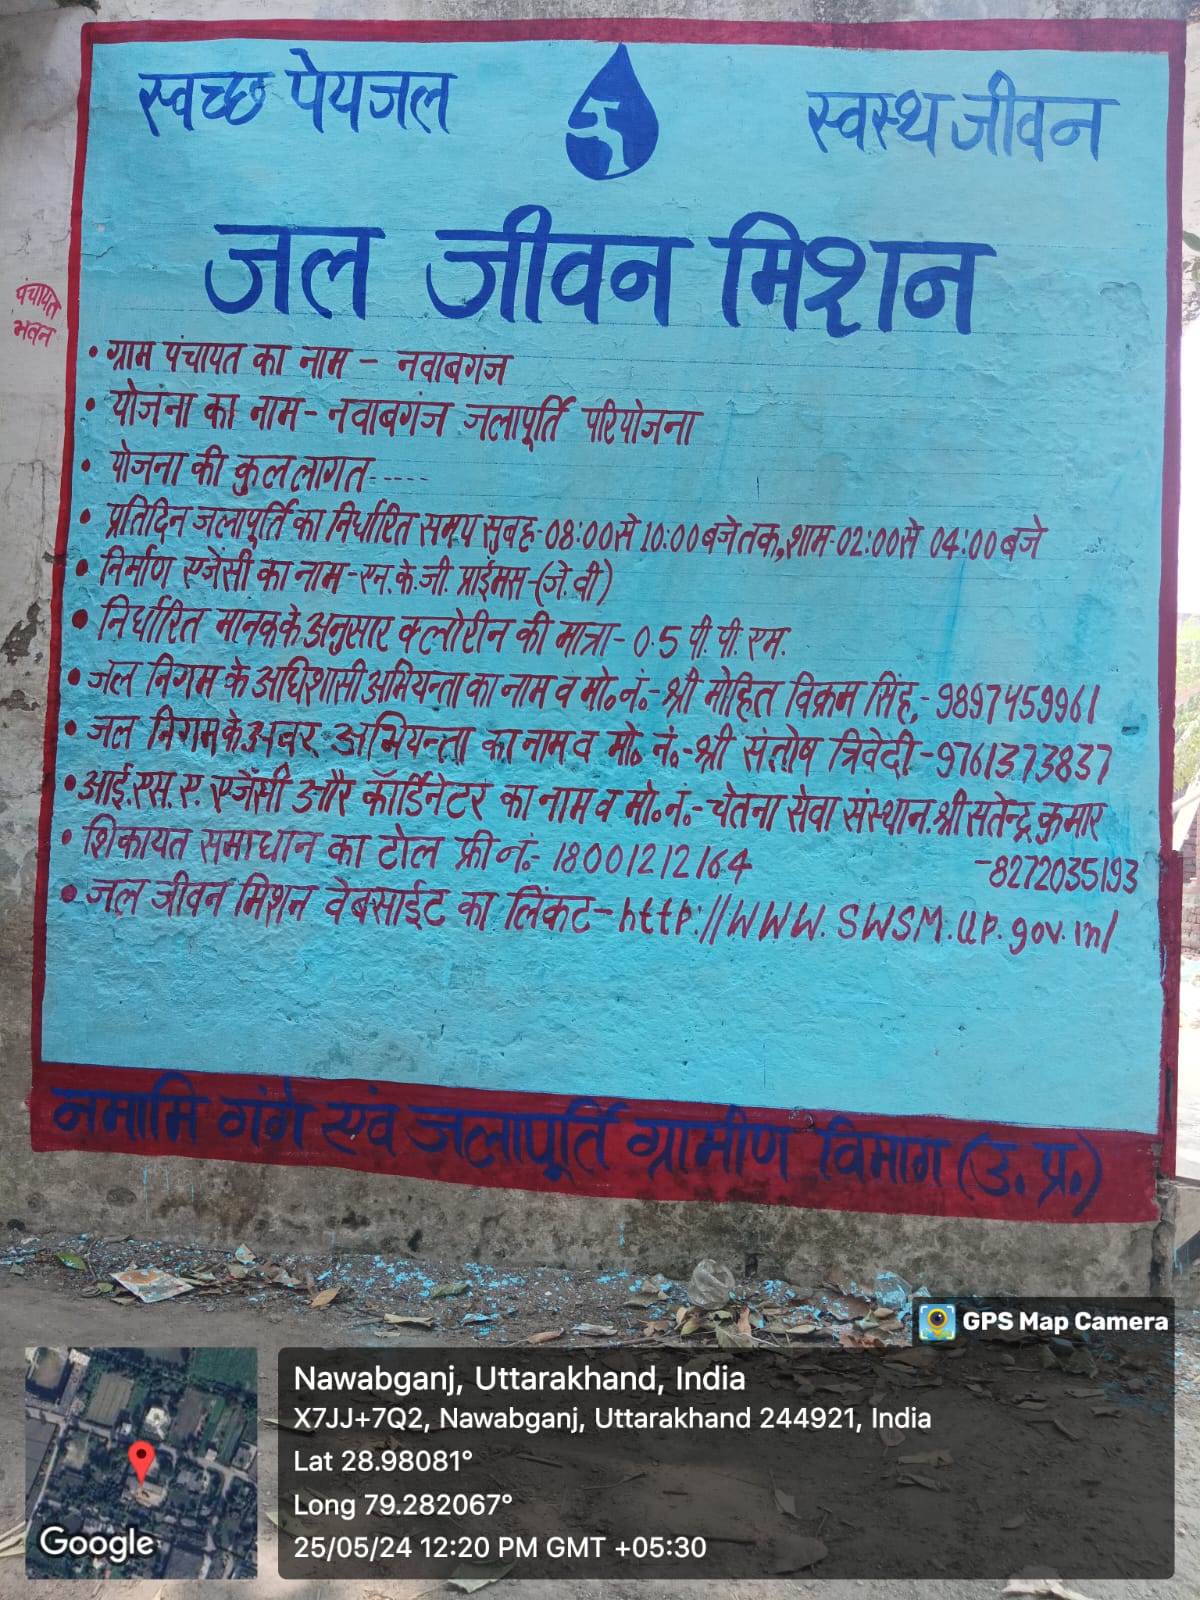 स्वच्छ पेयजल
स्वस्थ जीवन
जल जीवन मिशन
पंचायत
भवन
• ग्राम पंचायत का नाम - नवाबगंज
• योजना का नाम - नवाबगंज जलापूर्ति परियोजना
• योजना की कुल लागत-----
• प्रतिदिन जलापूर्ति का निर्धारित समय सुबह-08:00से 10:00 बजे तक,शाम-02:00से 04:00 बजे
• निर्माण एजेंसी का नाम-एन.के.जी. प्राईमस-(जे.वी)
• निर्धारित मानक के अनुसार क्लोरीन की मात्रा- 0.5 पी.पी.एम.
• जल निगम के अधिशासी अभियन्ता का नाम व मो०नं०-श्री मोहित विक्रम सिंह,-9897459961
• जल निगम के अवर अभियन्ता का नाम व मो० नं०-श्री संतोष त्रिवेदी-9761373837
• आई.एस.ए. एजेंसी और कॉर्डिनेटर का नाम व मो०नं०-चेतना सेवा संस्थान.श्री सतेन्द्र कुमार
-8272035193
• शिकायत समाधान का टोल फ्री नं०- 18001212164
• जल जीवन मिशन वेबसाईट का लिंकट-http://WWW.SWSM.UP.gov.in/
नमामि गंगे एवं जलापूर्ति ग्रामीण विभाग (उ.प्र.)
GPS Map Camera
Nawabganj, Uttarakhand, India
X7JJ+7Q2, Nawabganj, Uttarakhand 244921, India
Lat 28.98081°
Long 79.282067°
25/05/24 12:20 PM GMT +05:30
Google